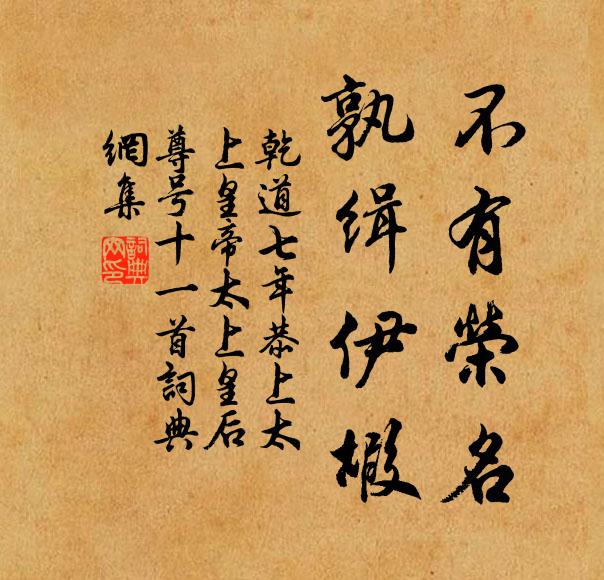 不有榮名
孰緝伊嘏
乾道七年恭上太
上皇帝太上皇后
尊号十一首詞典
網集
詞典
網印